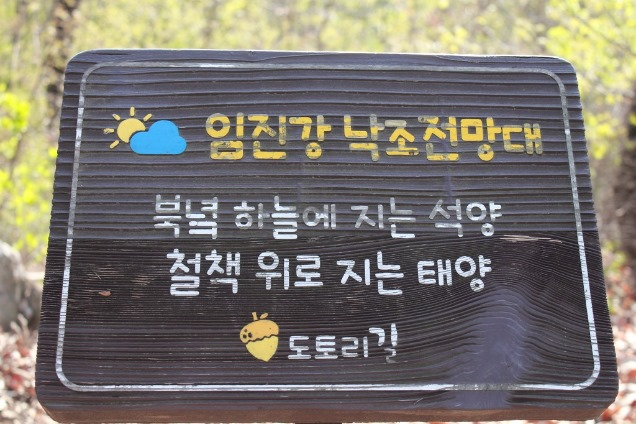 임진강 낙조전망대
북녘 하늘에 지는 석양
철책 위로 지는 태양
도토리길